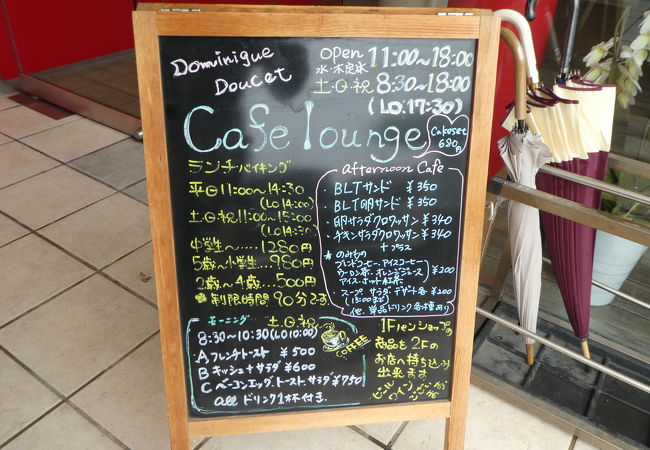 Dominique
Doucet
open 11:00〜18:00
水・木定休
土・日・祝 8:30〜18:00
(LO.17:30)
Cafe lounge
Cakeset
680円
ランチ・バイキング
平日 11:00〜14:30
(LO14:00)
土・日・祝 11:00〜15:00
(LO14:30)
中学生〜‥‥ 1280円
5歳〜小学生‥980円
2歳〜4歳‥‥500円
制限時間 90分です
afternoon Cafe
・BLTサンド ¥350
・BLT卵サンド ¥350
・卵サラダクロワッサン ¥340
・チキンサラダクロワッサン ¥340
+プラス
★のみもの
ブレンドコーヒー、アイスコーヒー
ウーロン茶・オレンジジュース ¥200
アイス・ホット紅茶
スープ サラダ・デザート 各¥200
(15:00まで)
(他、単品ドリンク各種有り)
モーニング 土・日・祝
8:30〜10:30 (LO10:00)
A フレンチトースト ¥500
B キッシュ+サラダ ¥600
C ベーコンエッグ、トースト、サラダ ¥750
all ドリンク1杯付き
COFFEE
1Fパンショップの
商品を2Fの
お店へ持ち込み
出来ます
ビール
ワイン